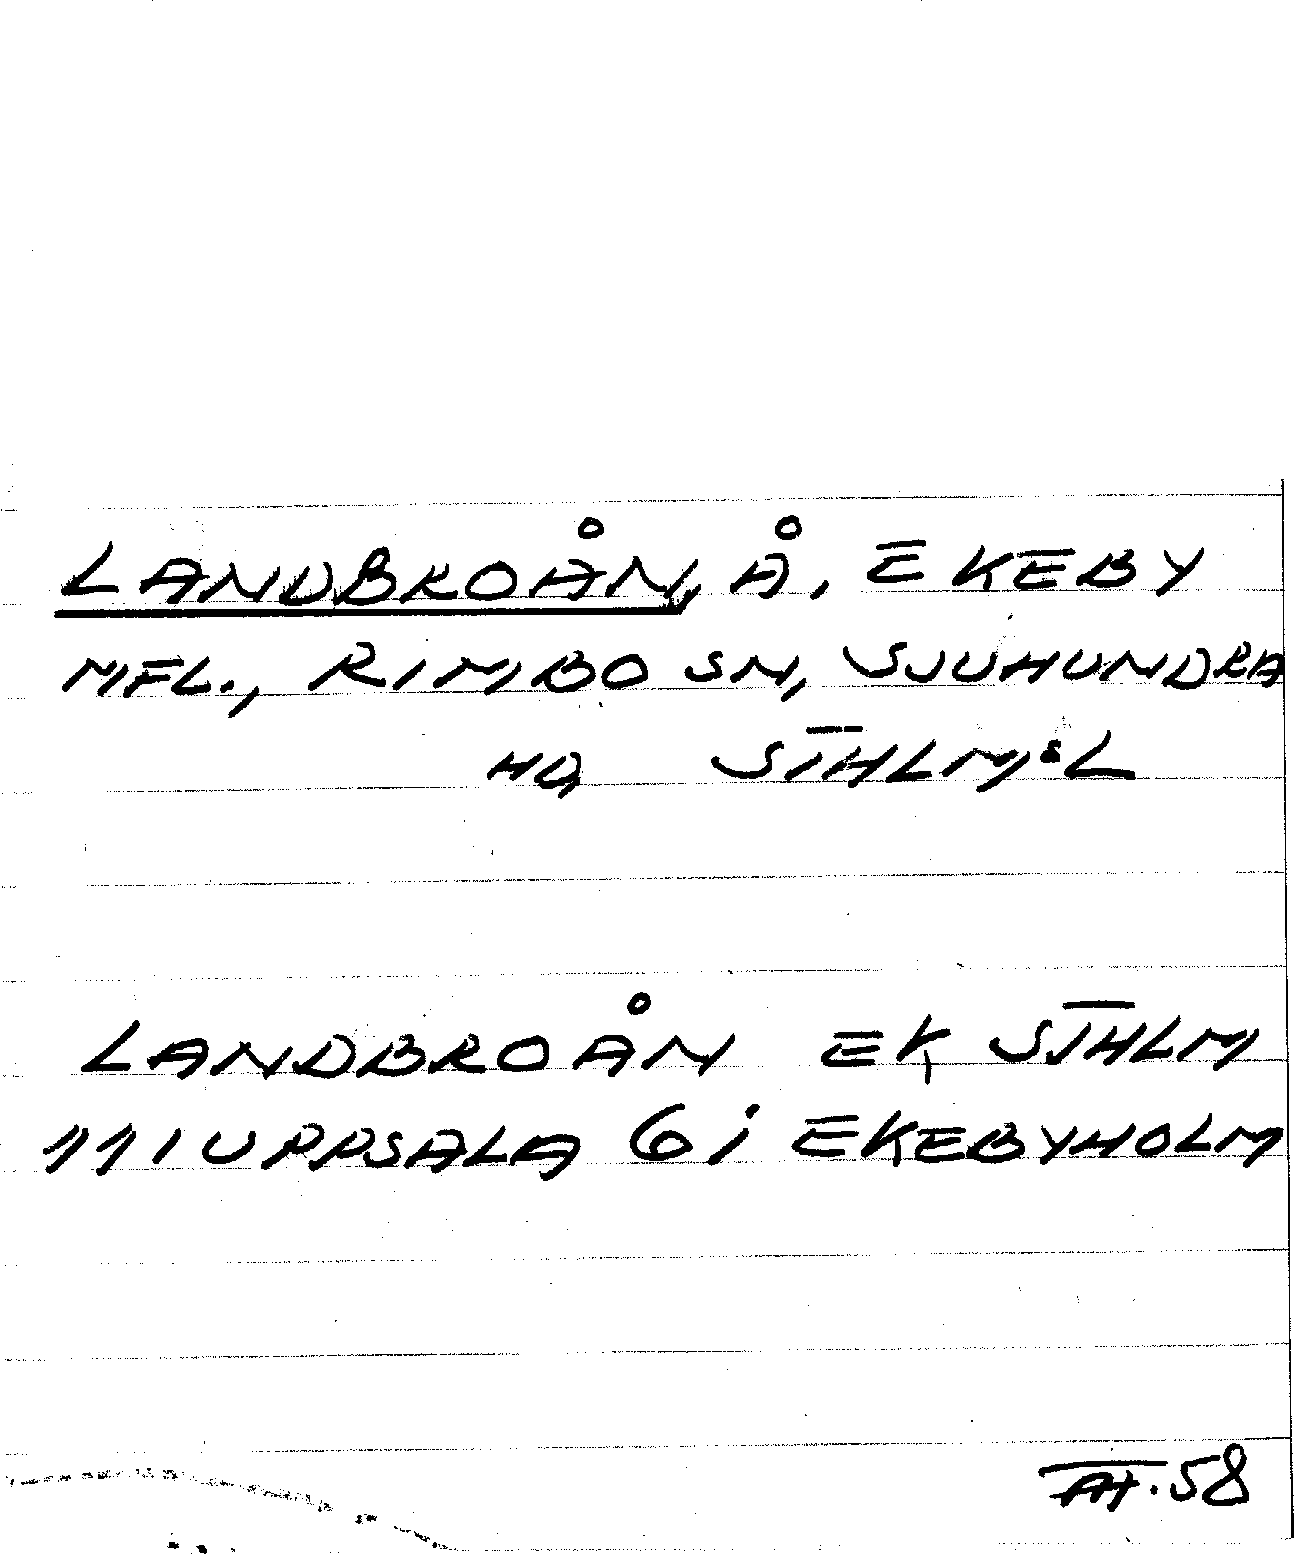 LANDBROÅN, Å, EKEBY
MFL., RIMBO SN, SJUHUNDRA
HD, STHLMSL
LANDBROÅN EK STHLM
111 UPPSALA 6 i EKEBYHOLM
58